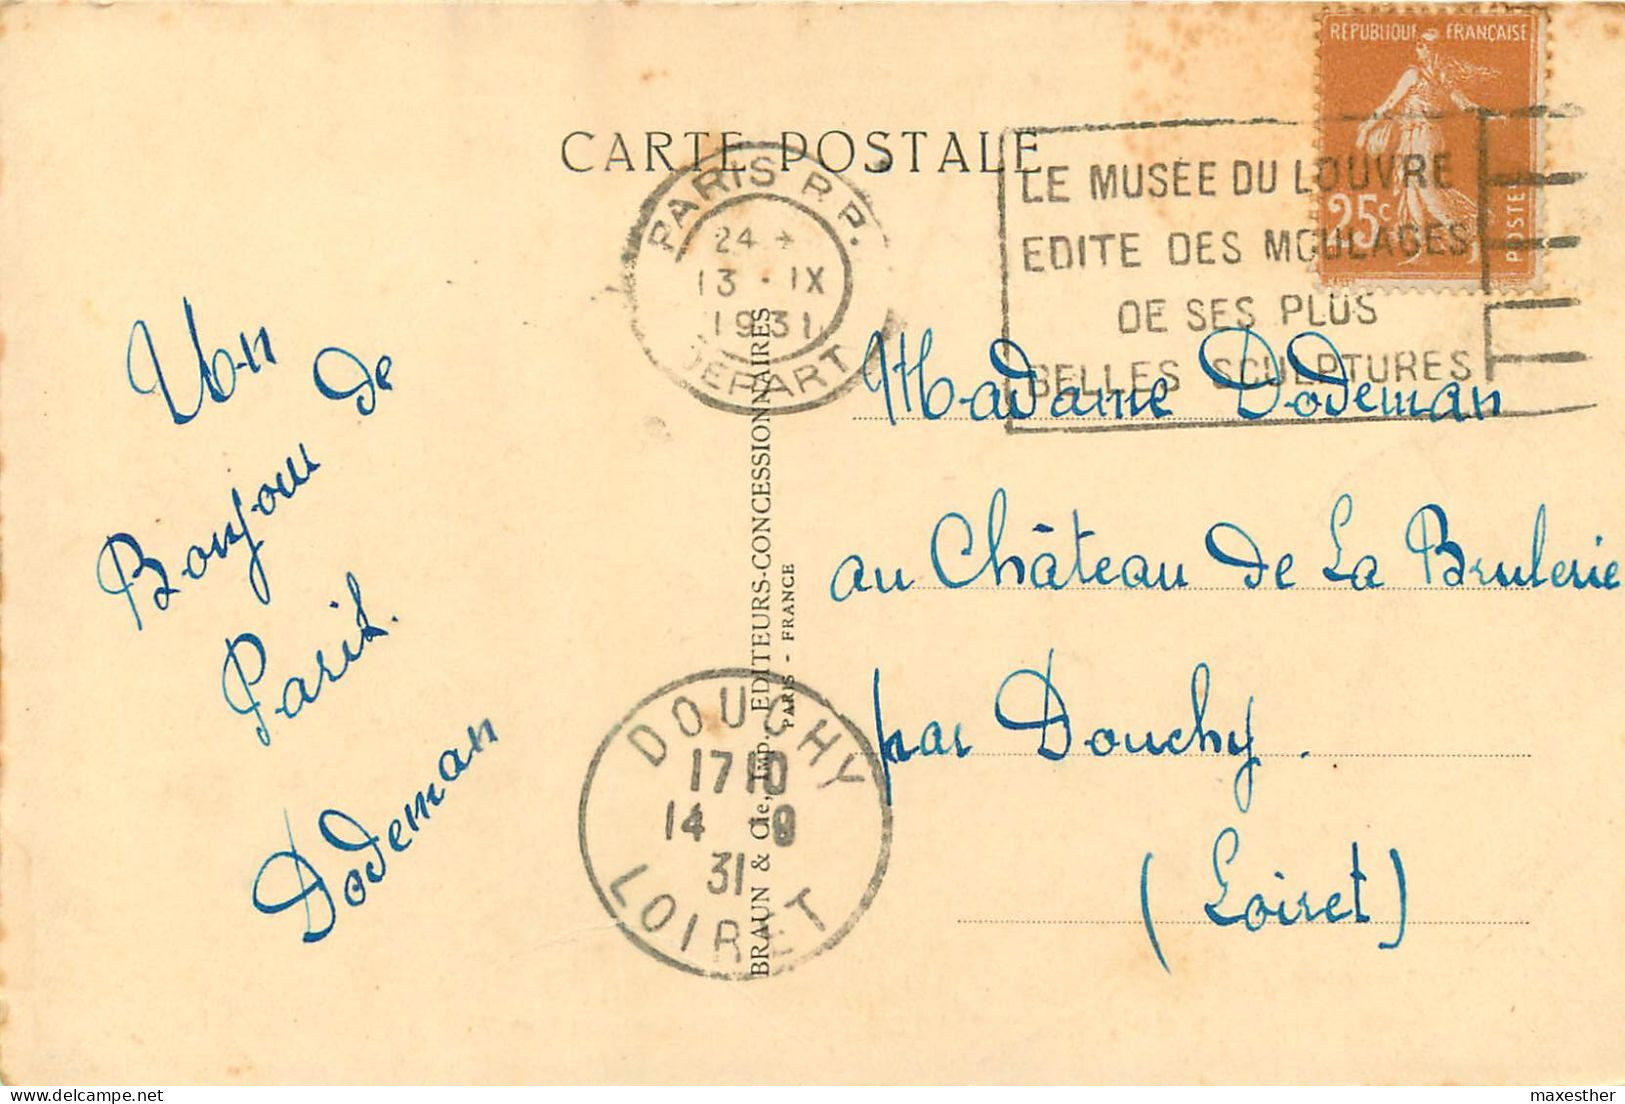 CARTE POSTALE
REPUBLIQUE FRANÇAISE
25c
POSTES
PARIS R.P.
24
13 · IX
1931
DEPART
LE MUSÉE DU LOUVRE
EDITE DES MOULAGES
DE SES PLUS
BELLES SCULPTURES
Un
Bonjour de
Paris.
Dodeman
BRAUN & Cie, Imp. EDITEURS-CONCESSIONNAIRES
PARIS - FRANCE
Madame Dodeman
au Château de La Brulerie
par Douchy.
(Loiret)
DOUCHY
17 10
14 9
31
LOIRET
maxesther